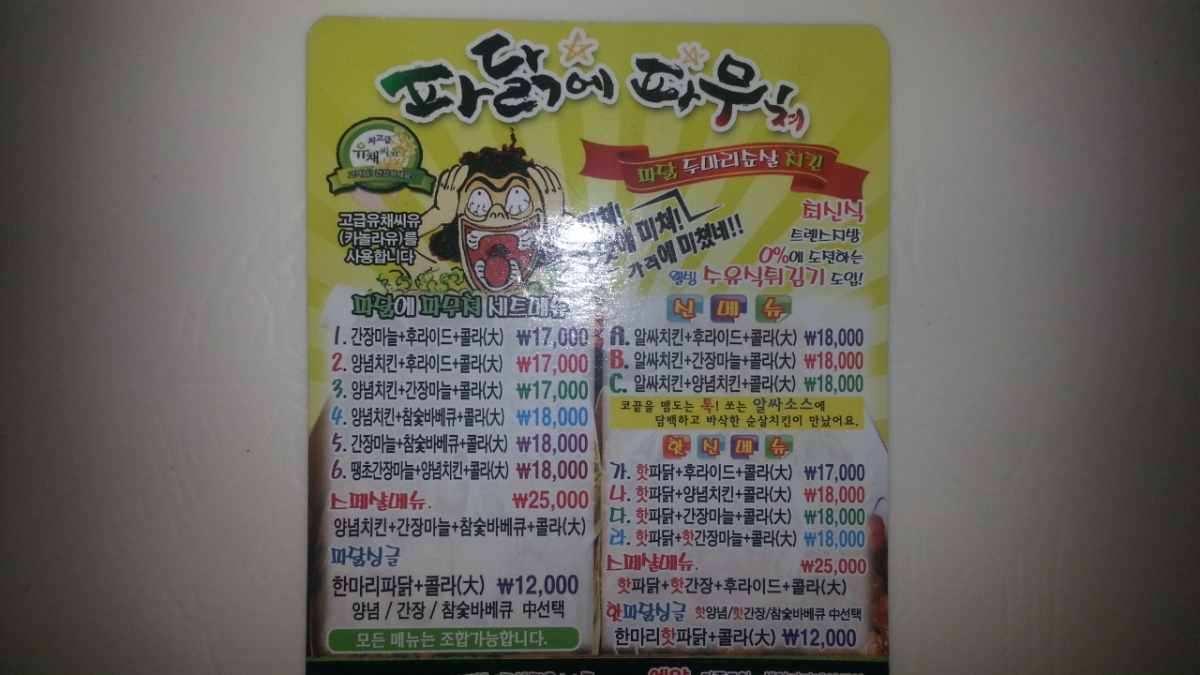 파닭에 파무쳐
최고급
유채씨유
파닭 두마리순살 치킨
고급유채씨유
(카놀라유)를
사용합니다
미쳐!
에 미쳐!
가격에 미쳤네!!
최신식
트랜스지방
0%에 도전하는
웰빙 수유식튀김기 도입!
파닭에 파무쳐 세트메뉴
1. 간장마늘+후라이드+콜라(大) ₩17,000
2. 양념치킨+후라이드+콜라(大) ₩17,000
3. 양념치킨+간장마늘+콜라(大) ₩17,000
4. 양념치킨+참숯바베큐+콜라(大) ₩18,000
5. 간장마늘+참숯바베큐+콜라(大) ₩18,000
6. 땡초간장마늘+양념치킨+콜라(大) ₩18,000
스페셜메뉴. ₩25,000
양념치킨+간장마늘+참숯바베큐+콜라(大)
파닭싱글
한마리파닭+콜라(大) ₩12,000
양념 / 간장 / 참숯바베큐 中선택
모든 메뉴는 조합가능합니다.
신메뉴
A. 알싸치킨+후라이드+콜라(大) ₩18,000
B. 알싸치킨+간장마늘+콜라(大) ₩18,000
C. 알싸치킨+양념치킨+콜라(大) ₩18,000
코끝을 맴도는 톡! 쏘는 알싸소스에
담백하고 바삭한 순살치킨이 만났어요.
핫신메뉴
가. 핫파닭+후라이드+콜라(大) ₩17,000
나. 핫파닭+양념치킨+콜라(大) ₩18,000
다. 핫파닭+간장마늘+콜라(大) ₩18,000
라. 핫파닭+핫간장마늘+콜라(大) ₩18,000
스페셜메뉴. ₩25,000
핫파닭+핫간장+후라이드+콜라(大)
핫파닭싱글 핫양념/핫간장/참숯바베큐 中선택
한마리핫파닭+콜라(大) ₩12,000